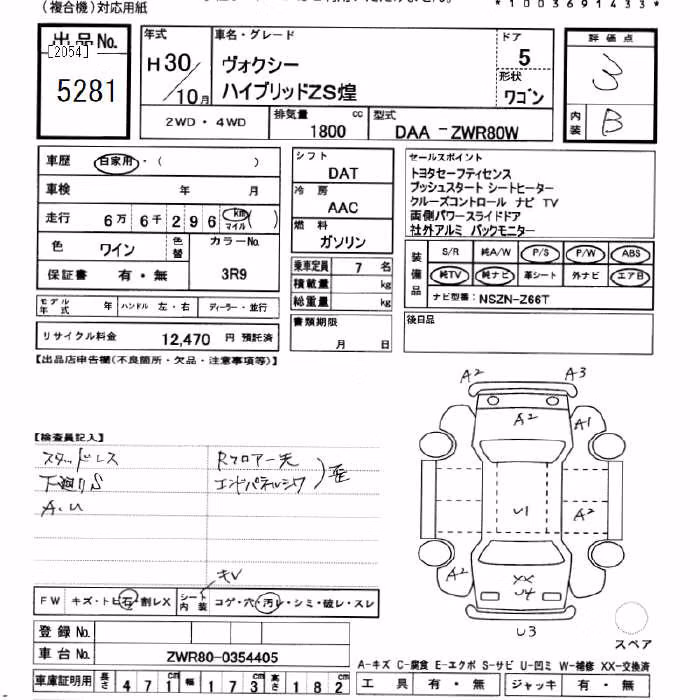 (複合機)対応用紙
*1003691433*
出品No.
[2054]
5281
年式
H30/10月
車名・グレード
ヴォクシー
ハイブリッドZS煌
ドア
5
形状
ワゴン
2WD・4WD
排気量
1800 cc
型式
DAA -ZWR80W
評価点
3
内装
B
車歴 自家用・( )
車検 年 月
走行 6万6千296 km マイル ( )
色 ワイン 色替 カラーNo. 3R9
保証書 有・無
モデル年式 年 ハンドル 左・右 ディーラー・並行
リサイクル料金 12,470 円 預託済
シフト
DAT
冷房
AAC
燃料
ガソリン
乗車定員 7 名
積載量 kg
総重量 kg
書類期限
月 日
セールスポイント
トヨタセーフティセンス
プッシュスタート シートヒーター
クルーズコントロール ナビ TV
両側パワースライドドア
社外アルミ バックモニター
装備品
S/R 純A/W P/S P/W ABS
純TV 純ナビ 革シート 外ナビ エアB
ナビ型番: NSZN-Z66T
後日品
【出品店申告欄(不良箇所・欠品・注意事項等)】
【検査員記入】
スタッドレス
下廻りS
A.U
Rフロアー先
エンドパネルシワ
歪
キレ
FW キズ・トビ石・割レX
シート内装 コゲ・穴・汚レ・シミ・破レ・スレ
登録No.
車台No. ZWR80-0354405
車庫証明用 長さ 471 幅 173 高さ 182
A2 A3
A2 A1
U1 A2
A2 XX
U4
U3
スペア
A-キズ C-腐食 E-エクボ S-サビ U-凹ミ W-補修 XX-交換済
工具 有・無 ジャッキ 有・無